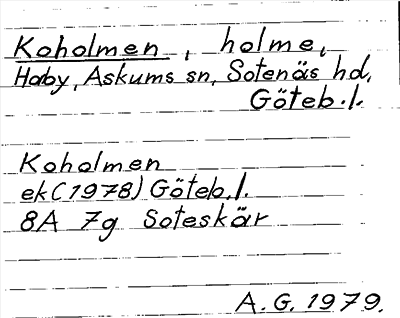 Koholmen, holme,
Haby, Askums sn, Sotenäs hd,
Göteb.l.
Koholmen
ek (1978) Göteb.l.
8A 7g Soteskär
A.G. 1979.